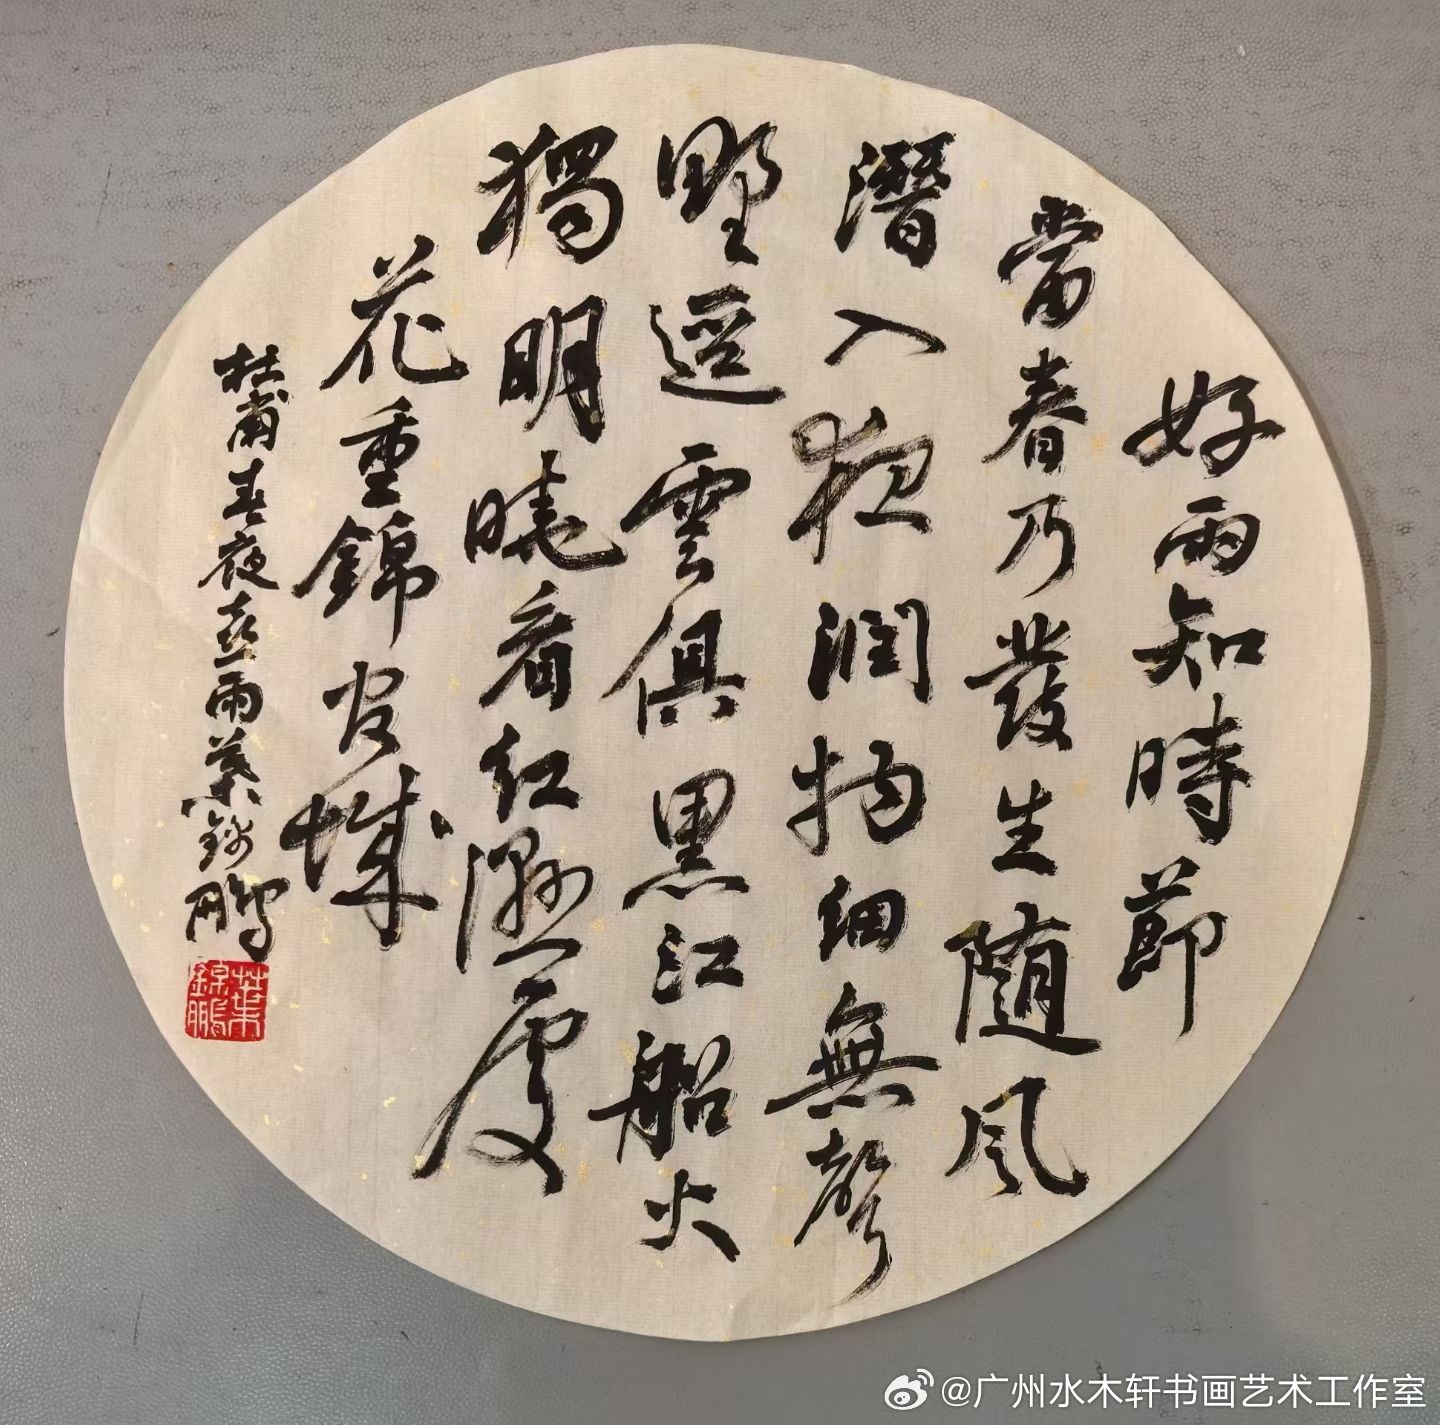 好雨知時節
當春乃發生随風
潛入夜潤物细無聲
野逕雲俱黑江船火
獨明曉看红濕處
花重錦官城
杜甫春夜喜雨葉錦鵬
葉錦鵬
@广州水木轩书画艺术工作室